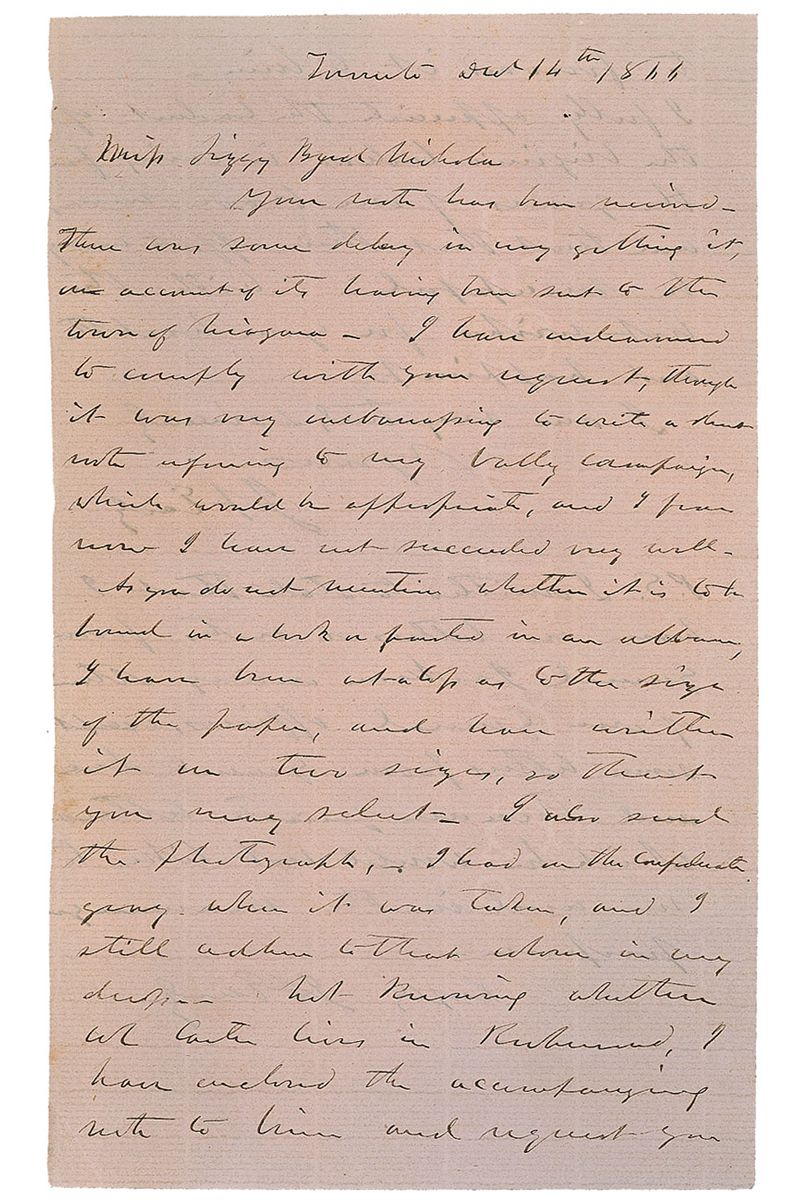 Toronto Dec 14th 1866
Miss Lizzy Byrd Nicholas
Your note has been received –
There was some delay in my getting it,
on account of its having been sent to the
town of Niagara – I have endeavoured
to comply with your request, though
it was very embarrassing to write a short
note refering to my Valley Campaign,
which would be appropriate, and I fear
now I have not succeeded very well –
As you do not mention whether it is to be
bound in a book or pasted in an album,
I have been at a loss as to the size
of the paper, and have written
it on two sizes, so that
you may select – I also send
the photograph, – I had on the Confederate
gray when it was taken, and I
still adhere to that colour in my
dress – Not knowing whether
Col Carter lives in Richmond, I
have enclosed the accompanying
note to him and request you